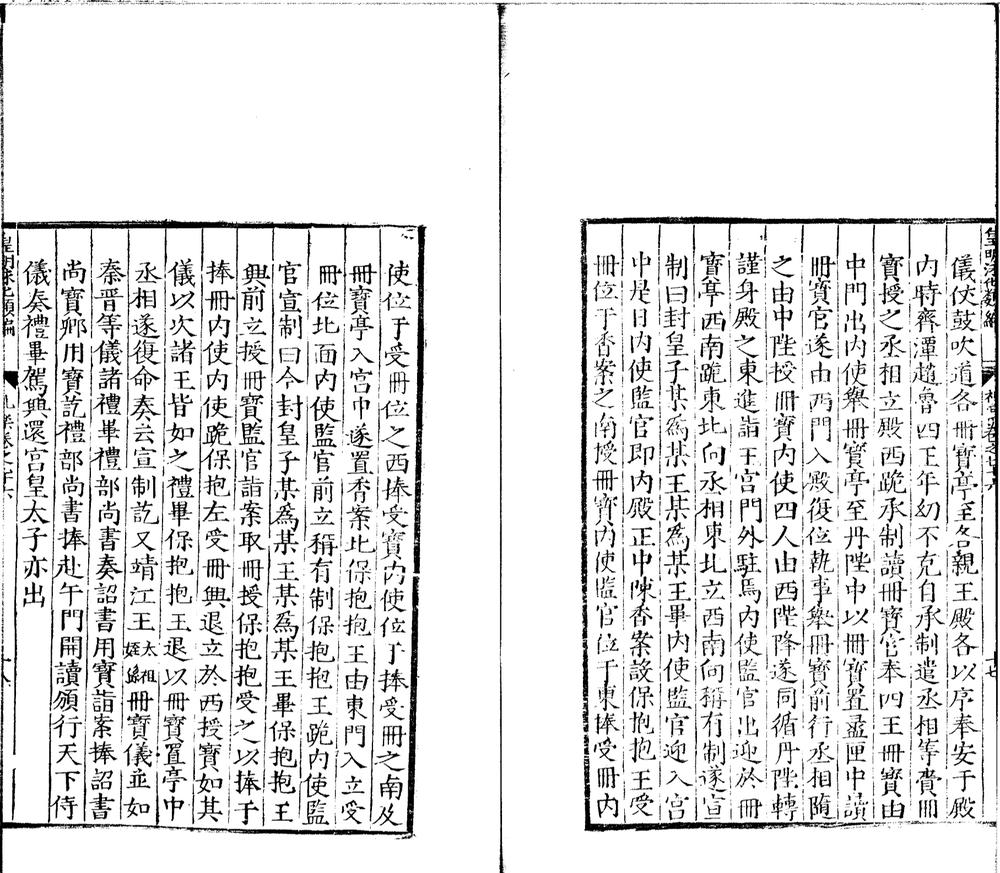 儀仗鼓吹道各冊寶亭至各親王殿各以序奉安于殿
內時齊潭趙魯四王年幼不克自承制遣丞相等賫冊
寶授之丞相立殿西跪承制讀冊寶官奉四王冊寶由
中門出內使舉冊寶亭至丹陛中以冊寶置盝匣中讀
冊寶官遂由西門入殿復位執事舉冊寶前行丞相隨
之由中陛授冊寶內使四人由西陛降遂同循丹陛轉
謹身殿之東進詣王宮門外駐焉內使監官出迎於冊
寶亭西南跪東北向丞相東北立西南向稱有制遂宣
制曰封皇子某為某王某為某王畢內使監官迎入宮
中是日內使監官即內殿正中陳香案設保抱抱王受
冊位于香案之南授冊寶內使監官位于東捧受冊內
使位于受冊位之西捧受寶內使位于捧受冊之南及
冊寶亭入宮中遂置香案北保抱抱王由東門入立受
冊位北面內使監官前立稱有制保抱抱王跪內使監
官宣制曰今封皇子某為某王某為某王畢保抱抱王
興前立授冊寶監官詣案取冊授保抱抱受之以捧于
捧冊內使內使跪保抱左受冊興退立於西授寶如其
儀以次諸王皆如之禮畢保抱抱王退以冊寶置亭中
丞相遂復命奏云宣制訖又靖江王太祖姪孫冊寶儀並如
秦晉等儀諸禮畢禮部尚書奏詔書用寶詣案捧詔書
尚寶卿用寶訖禮部尚書捧赴午門開讀頒行天下侍
儀奏禮畢駕興還宮皇太子亦出